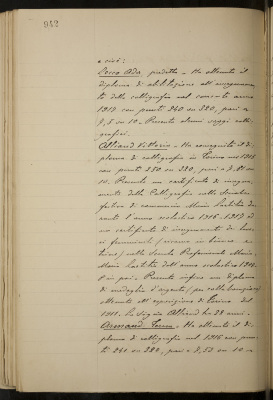 942
e cioè:
Porro Ada, predetta - Ha ottenuto il
diploma di abilitazione all'insegnamen-
to della calligrafia nel corrente anno
1917 con punti 240 su 320, pari a
7,5 su 10 - Presenta alcuni saggi calli-
grafici.
Alliaud Vittorio - Ha conseguito il di-
ploma di calligrafia in Torino nel 1916
con punti su 320, pari a su
10. Presenta un certificato di insegna-
mento della Calligrafia nella Scuola
di commercio Maria Laetitia du-
rante l'anno scolastico 1916-1917 ed
un certificato di insegnamento di lavo-
ri femminili (ricamo in bianco e
) nella Scuola Professionale Maria
Maria Laetitia dell'anno scolastico
in poi - Presenta infine un diploma
di medaglia d'argento (per collaborazione)
ottenuto all'esposizione di Torino del
1911. La sig.ra Alliaud ha 38 anni.
Armand - Ha ottenuto il di-
ploma di calligrafia nel 1916 con pun-
ti 241 su 320, pari a 7,53 su 10 -